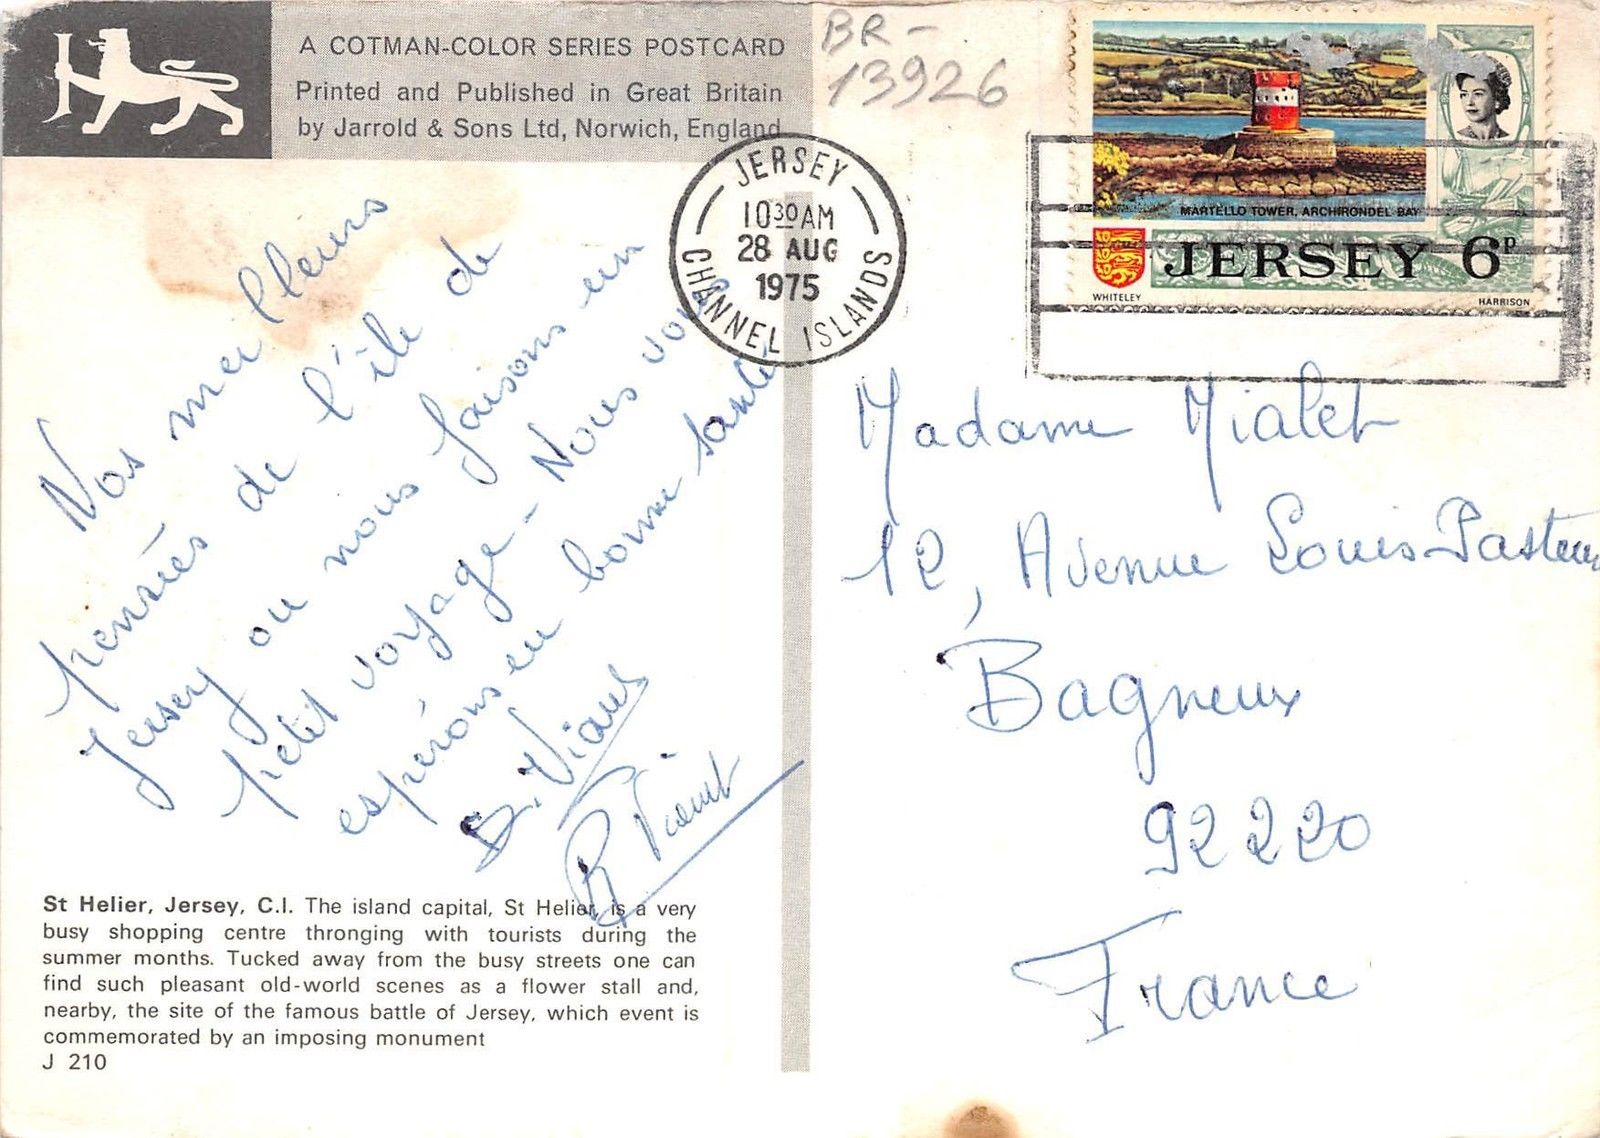 A COTMAN-COLOR SERIES POSTCARD
Printed and Published in Great Britain
by Jarrold & Sons Ltd, Norwich, England
BR-
13926
JERSEY
10 30 AM
28 AUG
1975
CHANNEL ISLANDS
MARTELLO TOWER, ARCHIRONDEL BAY
JERSEY 6P
WHITELEY
HARRISON
Nos meilleures
pensées de l'île de
Jersey ou nous faisons un
petit voyage - Nous vous
espérons en bonne santé,
Madame Mialet
12, Avenue Louis Pasteur
Bagneux
92220
France
St Helier, Jersey, C.I. The island capital, St Helier, is a very
busy shopping centre thronging with tourists during the
summer months. Tucked away from the busy streets one can
find such pleasant old-world scenes as a flower stall and,
nearby, the site of the famous battle of Jersey, which event is
commemorated by an imposing monument
J 210